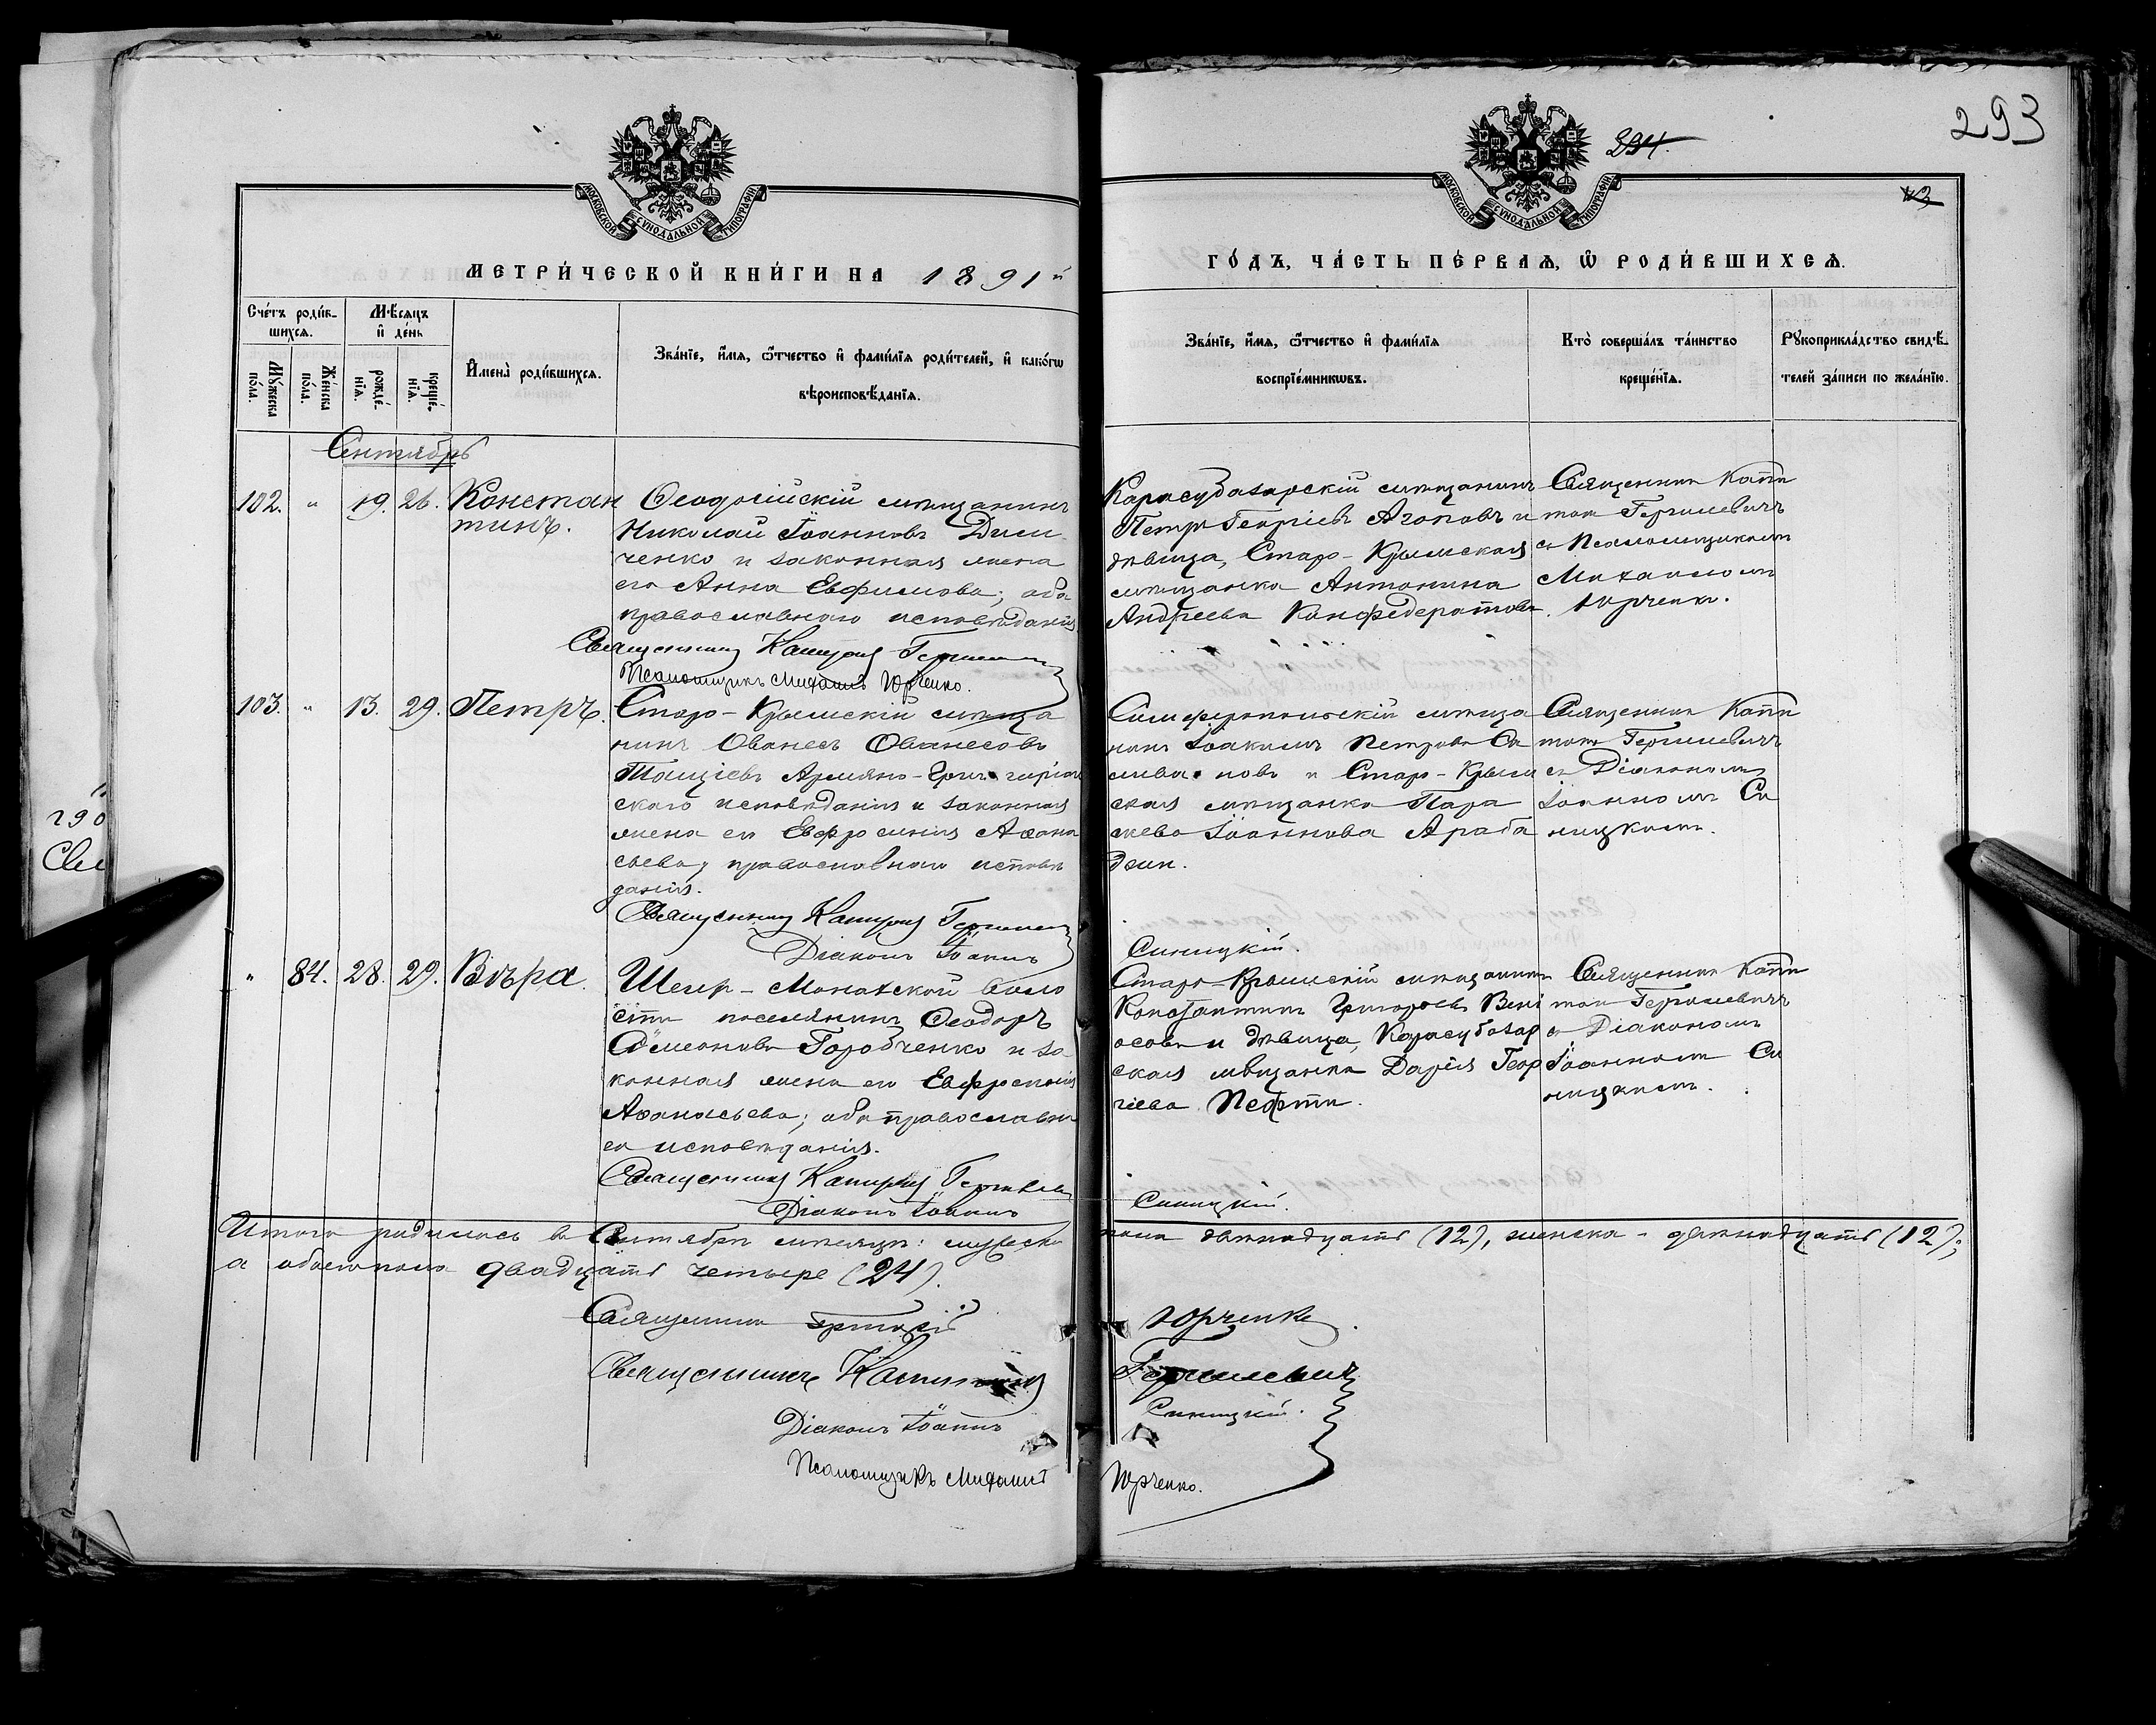 293
294.
43
МОСКОВСКОЙ СѴНОДАЛЬНОЙ ТИПОГРАФІИ
МОСКОВСКОЙ СѴНОДАЛЬНОЙ ТИПОГРАФІИ
МЕТРИ́ЧЕСКОЙ КНИ́ГИ НА 1891й
ГО́ДЪ, ЧА́СТЬ ПЕ́РВАѦ, Ѽ РОДИ́ВШИХСѦ.
Сче́тъ роди́в-
шихсѧ.
Мꙋ́жеска по́ла.
Же́нска по́ла.
Мѣ́сѧцъ и҆ де́нь
рожде́-
нїѧ.
креще́-
нїѧ.
И҆мена̀ роди́вшихсѧ.
Зва́нїе, и҆́мѧ, ѻ҆́тчество и҆ фами́лїѧ роди́телей, и҆ како́гѡ
вѣроисповѣ́данїѧ.
Зва́нїе, и҆́мѧ, ѻ҆́тчество и҆ фами́лїѧ
воспрїе́мникѡвъ.
Кто̀ соверша́лъ та́инство
креще́нїѧ.
Рꙋкоприкла́дство свидѣ́-
телей за́писи по жела́нїю.
Сентябрь
102. " 19. 26. Констан
тинъ.
Ѳеодосійскій мѣщанинъ
Николай Іоанновъ Дем
ченко и законная жена
его Анна Евфимова; оба
православнаго исповѣданія
Священникъ Капитонъ Гергилевичъ
Псаломщикъ Михаилъ Юрченко.
Карасубазарскій мѣщанинъ
Петръ Георгіевъ Агоповъ и
дѣвица, Старо-Крымская
мѣщанка Антонина
Андреева Конфедератова.
Священникъ Капи
тонъ Гергилевичъ
съ Псаломщикомъ
Михаиломъ
Юрченко.
103. " 13. 29. Петръ.
Старо-Крымскій мѣща
нинъ Ованесъ Ованесовъ
Тащіевъ Армяно-Григоріан
скаго исповѣданія и законная
жена его Евфросинія Аѳана
сьева, православнаго исповѣ
данія.
Священникъ Капитонъ Гергилевичъ
Діаконъ Іоаннъ
Симферопольскій мѣща
нинъ Іоакимъ Петровъ Се
ливановъ и Старо-Крым
ская мѣщанка Пара
скева Іоаннова Араба
джи.
Синицкій.
Священникъ Капи
тонъ Гергилевичъ
съ Діакономъ
Іоанномъ Си
ницкимъ.
" 84. 28. 29. Вѣра.
Шейх-Монахской воло
сти поселянинъ Ѳеодоръ
Симеоновъ Горобченко и за
конная жена его Евфросинія
Аѳанасьева; оба православна
го исповѣданія.
Священникъ Капитонъ Гергилевичъ
Діаконъ Іоаннъ
Старо-Крымскій мѣщанинъ
Константинъ Григорьевъ
и дѣвица, Карасубазар
ская мѣщанка Дарія Геор
гіева Пефти.
Синицкій.
Священникъ Капи
тонъ Гергилевичъ
съ Діакономъ
Іоанномъ Си
ницкимъ.
Итого родилось въ Сентябрѣ мѣсяцѣ: мужеска
пола двѣнадцать (12), женска - двѣнадцать (12);
а обоего пола двадцать четыре (24).
Священникъ
Юрченко.
Священникъ Капитонъ
Гергилевичъ
Діаконъ Іоаннъ
Синицкій.
Псаломщикъ Михаилъ
Юрченко.
290